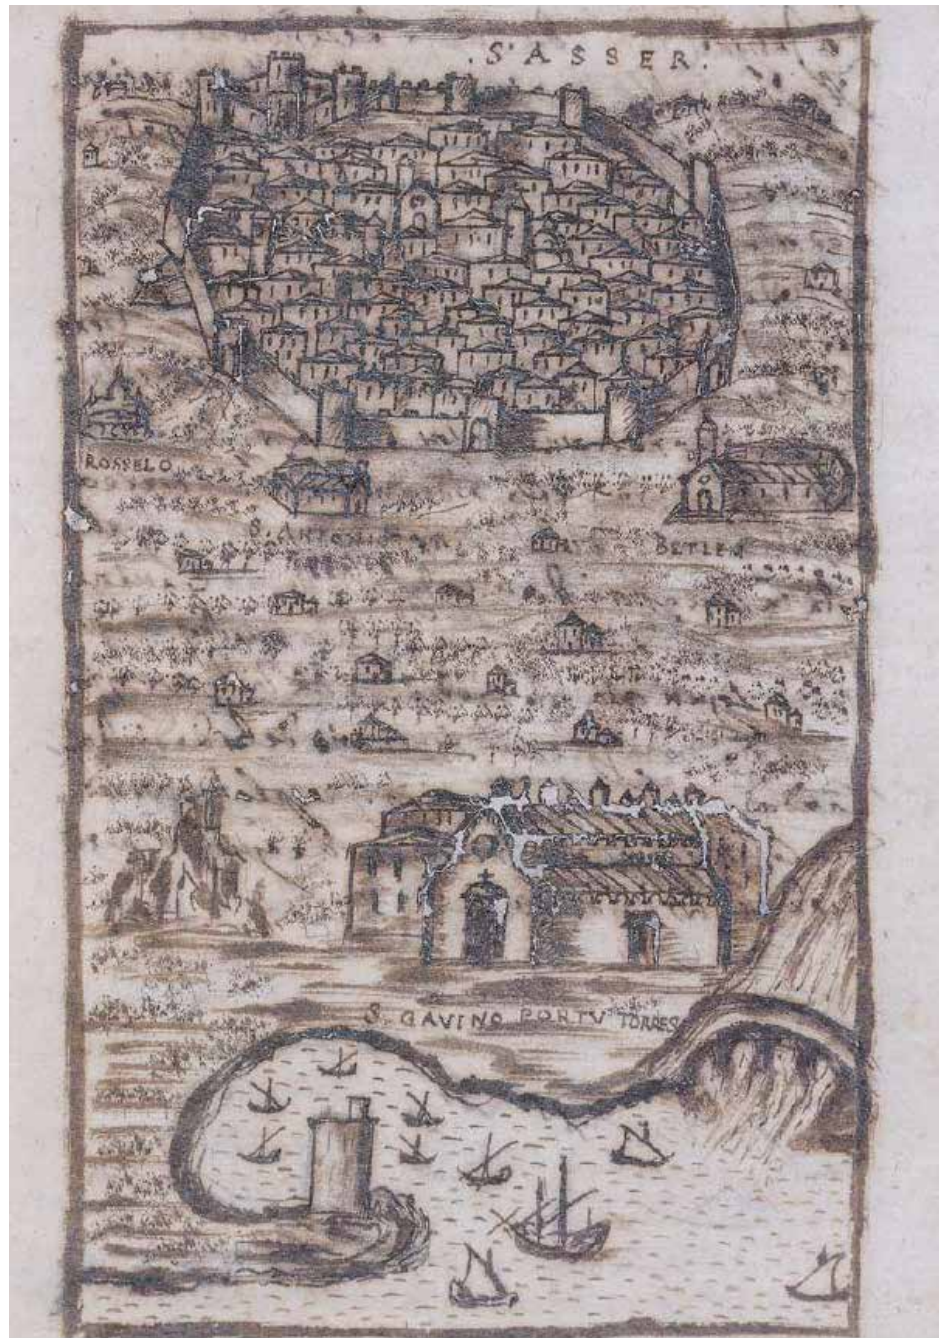 . S'ASSER .
ROSSELO
S. ANTONI
BETLEM
S. GAVINO PORTV TORRES